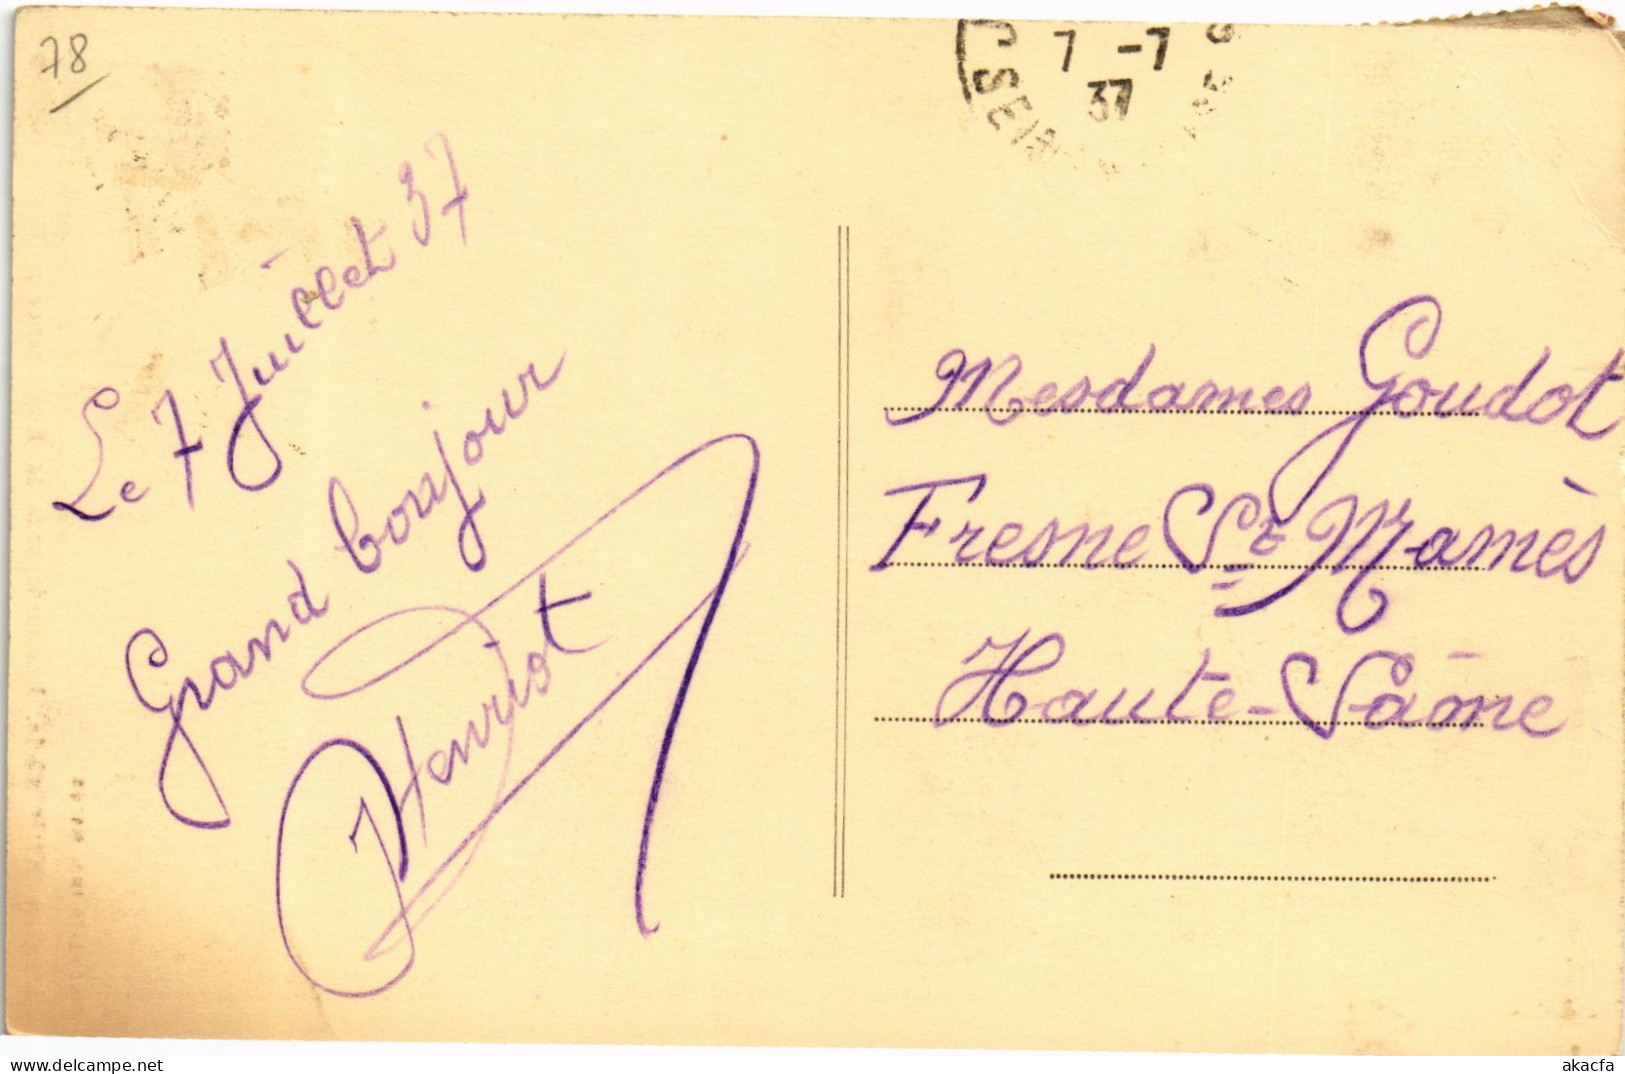 78
7 -7
37
Le 7 Juillet 37
Grand bonjour
Henriot
Mesdames Goudot
Fresne St Mamès
Haute-Saône
delcampe.net
akacfa